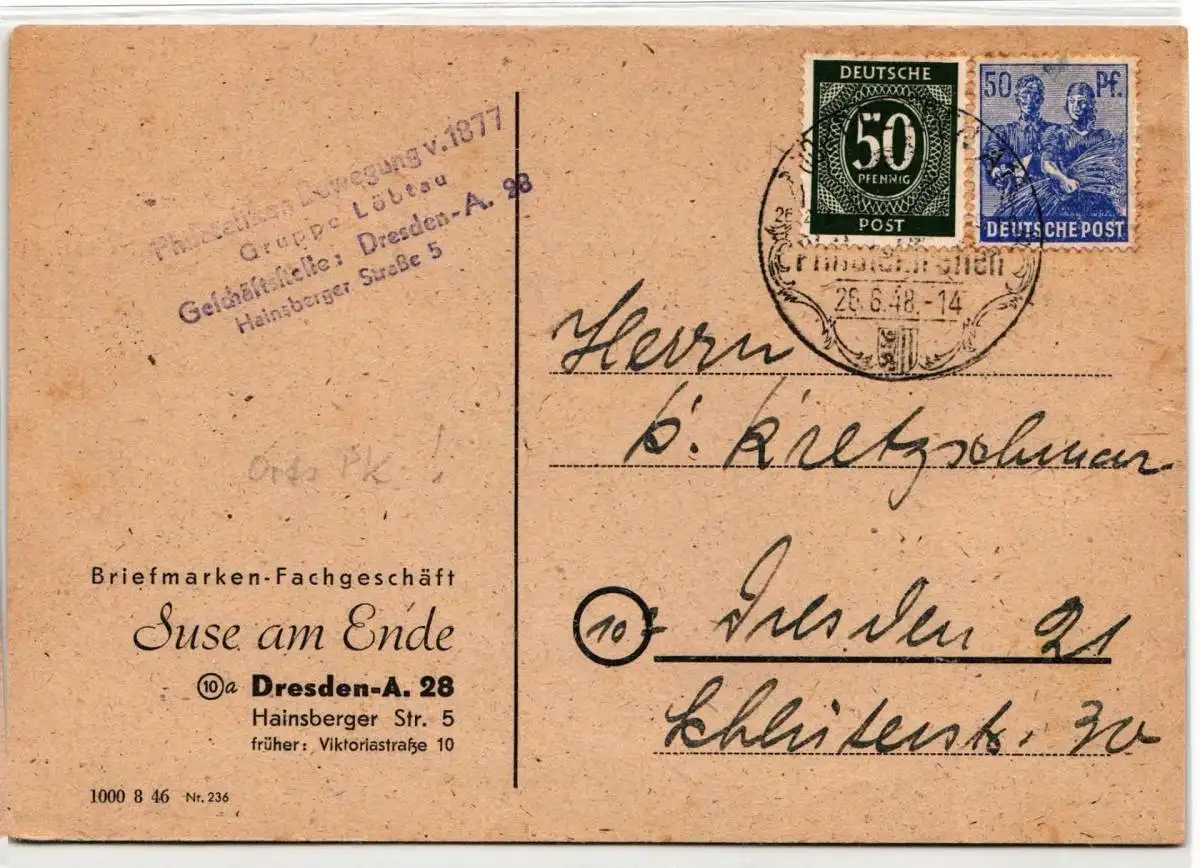 Bewegung v. 1877
Gruppe Löbtau
Geschäftsstelle: Dresden-A. 28
Hainsberger Straße 5
DEUTSCHE
50
PFENNIG
POST
50 Pf.
DEUTSCHE POST
26.6.48.-14
Herrn
K. Kretzschmar
Orts PK!
Briefmarken-Fachgeschäft
Suse am Ende
10 a Dresden-A. 28
Hainsberger Str. 5
früher: Viktoriastraße 10
10 Dresden 21
Schlüterstr. 30
1000 8 46 Nr. 236